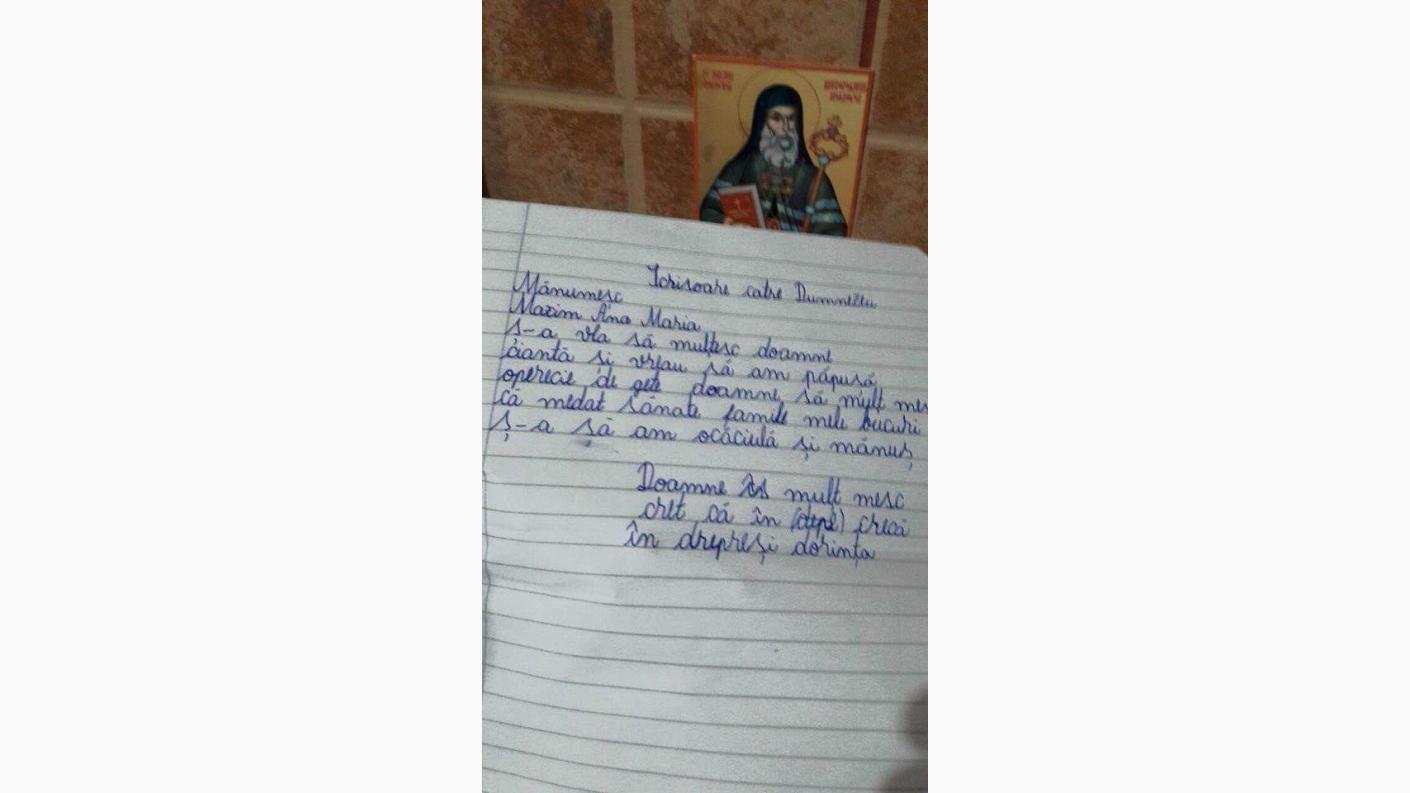 Icrisoare catre Dumnezeu
Mănumesc
Maxim Ana Maria
ș-a vla să multesc doamne
ciantă și vreau să am păpusă
operecie de gete doamne să mult mes
că medat sănate famile mele bucuri
ș-a să am ocăciulă și mănuș
Doamne mult mesc
cret că în crecă
în drepreși dorința